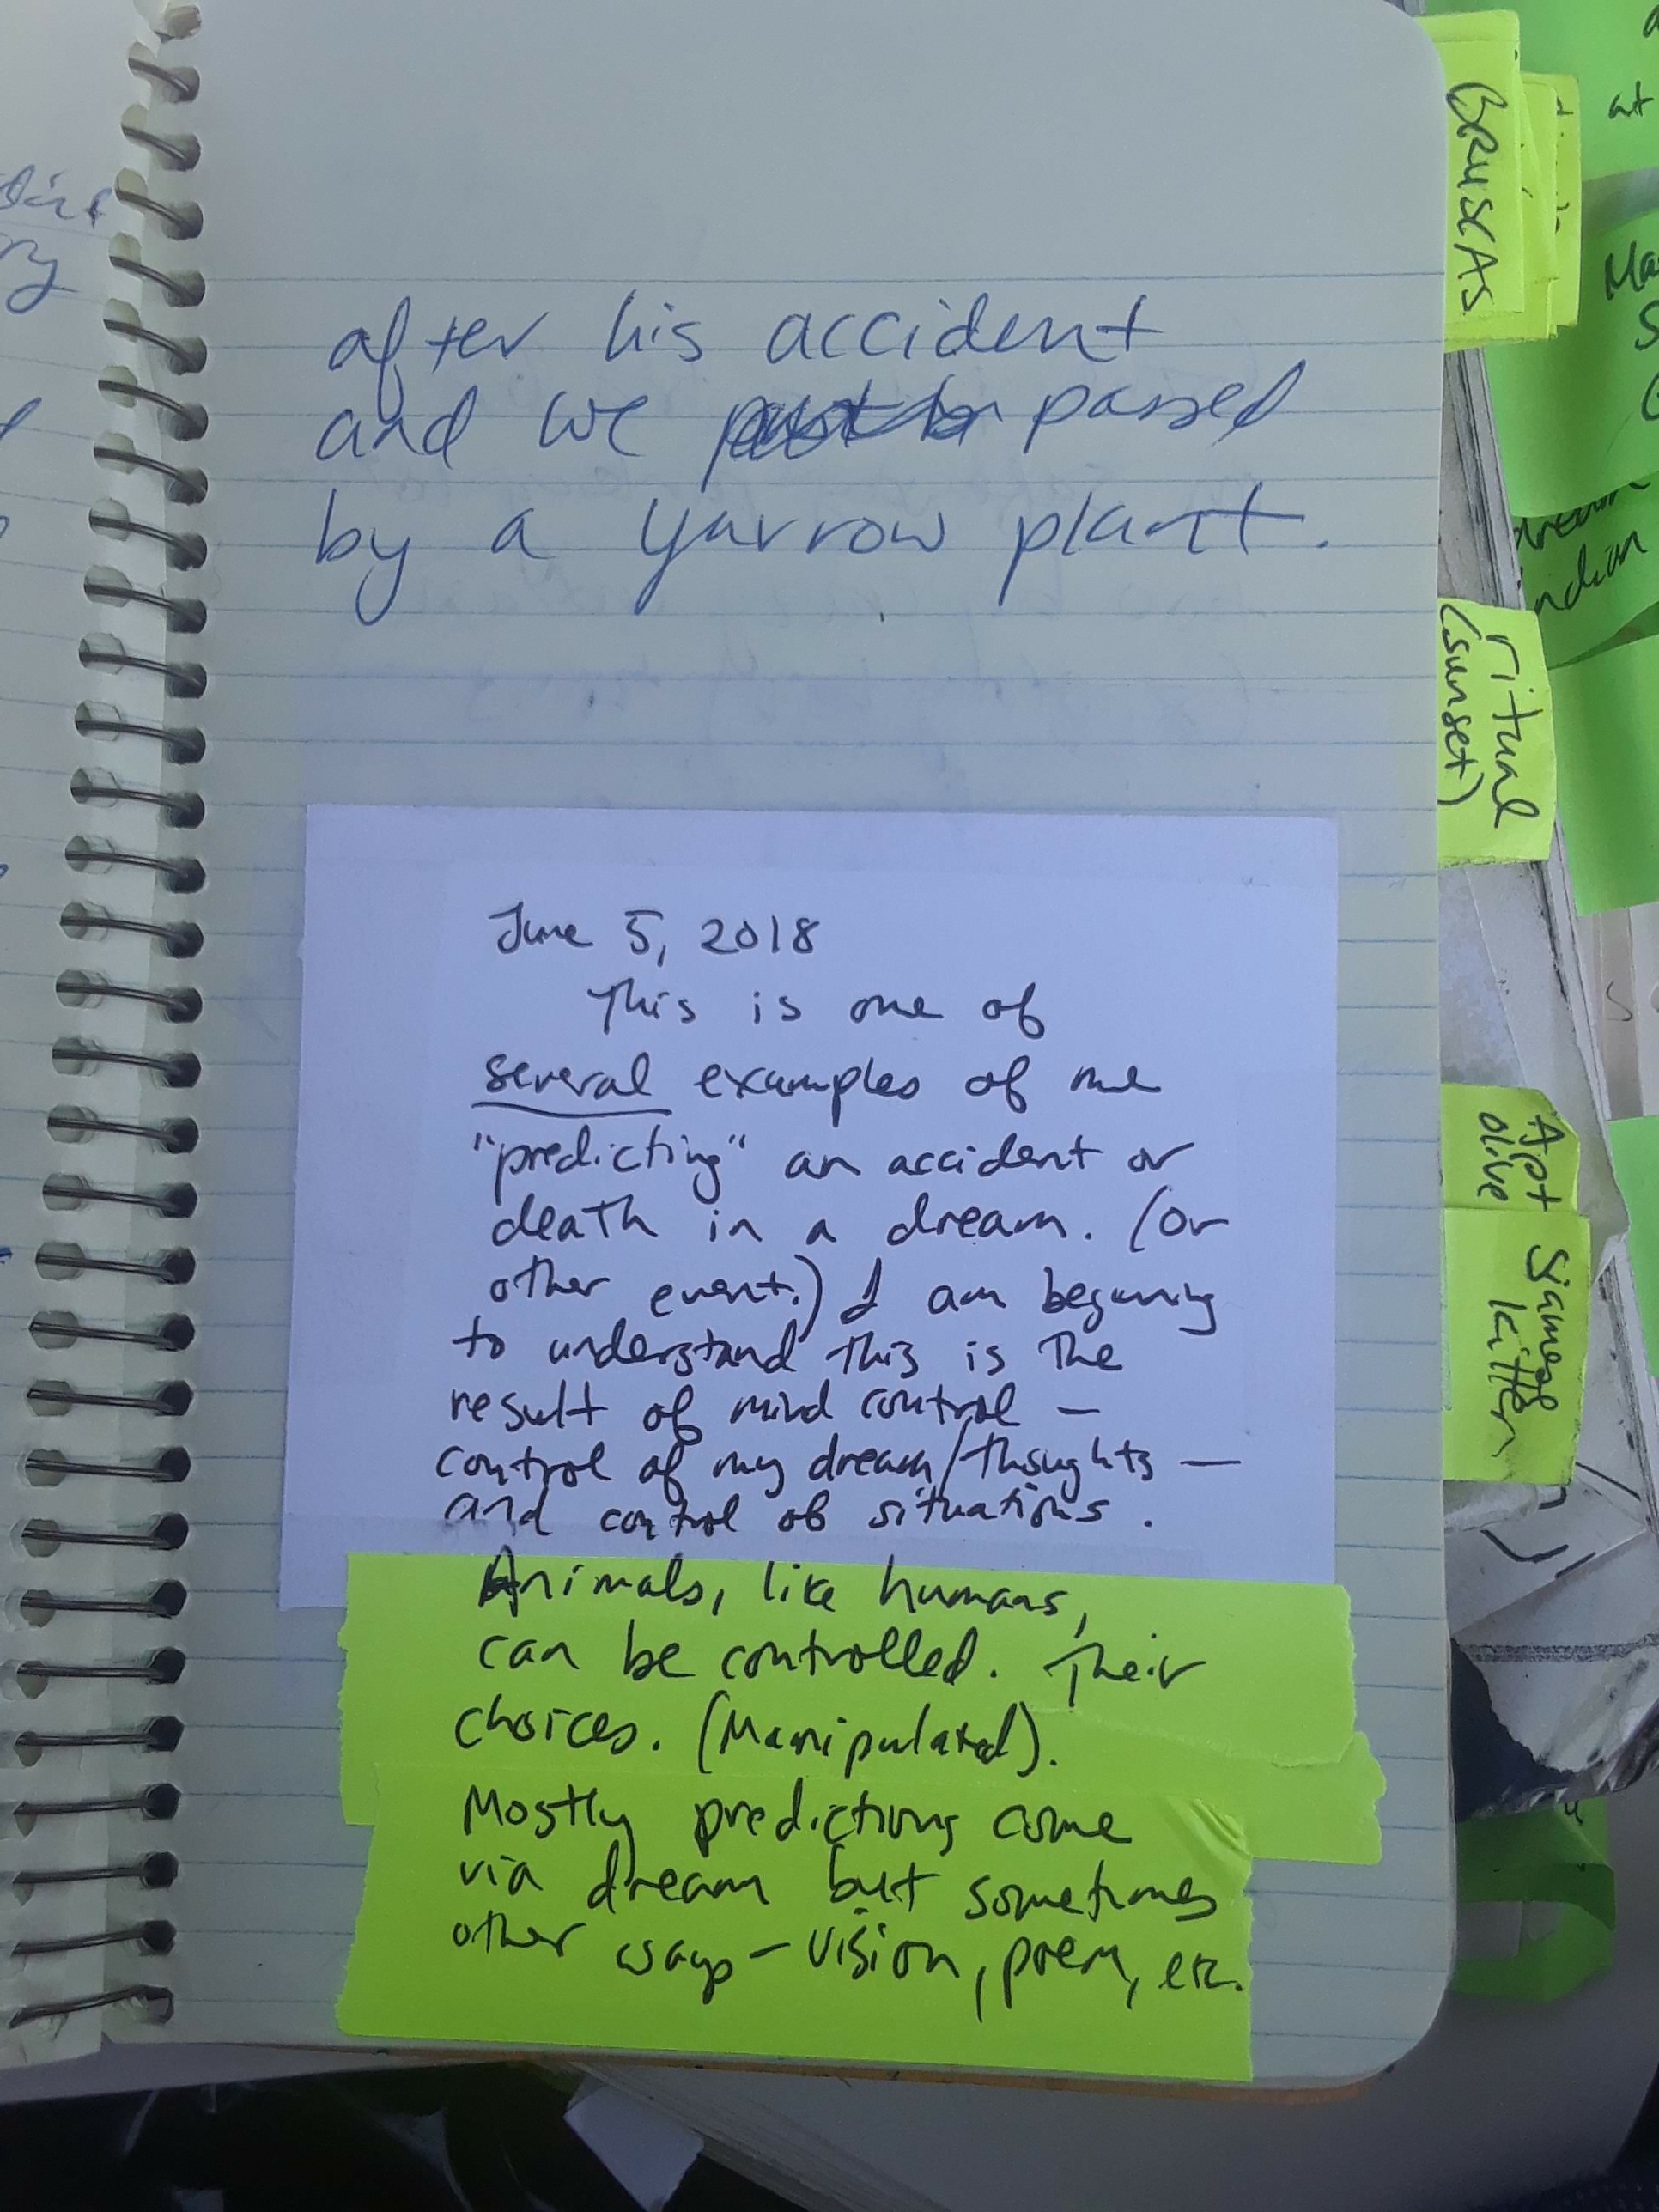 after his accident
and we passed
by a yarrow plant.
June 5, 2018
This is one of
several examples of me
"predicting" an accident or
death in a dream. (Or
other event.) I am beginning
to understand this is the
result of mind control —
control of my dream/thoughts —
and control of situations.
Animals, like humans,
can be controlled. Their
choices. (Manipulated).
Mostly predictions come
via dream but sometimes
other ways – vision, poem, etc.
BRUISCAS
ritual
(sunset)
Apt
olive
Siamese
kitten
at
dream